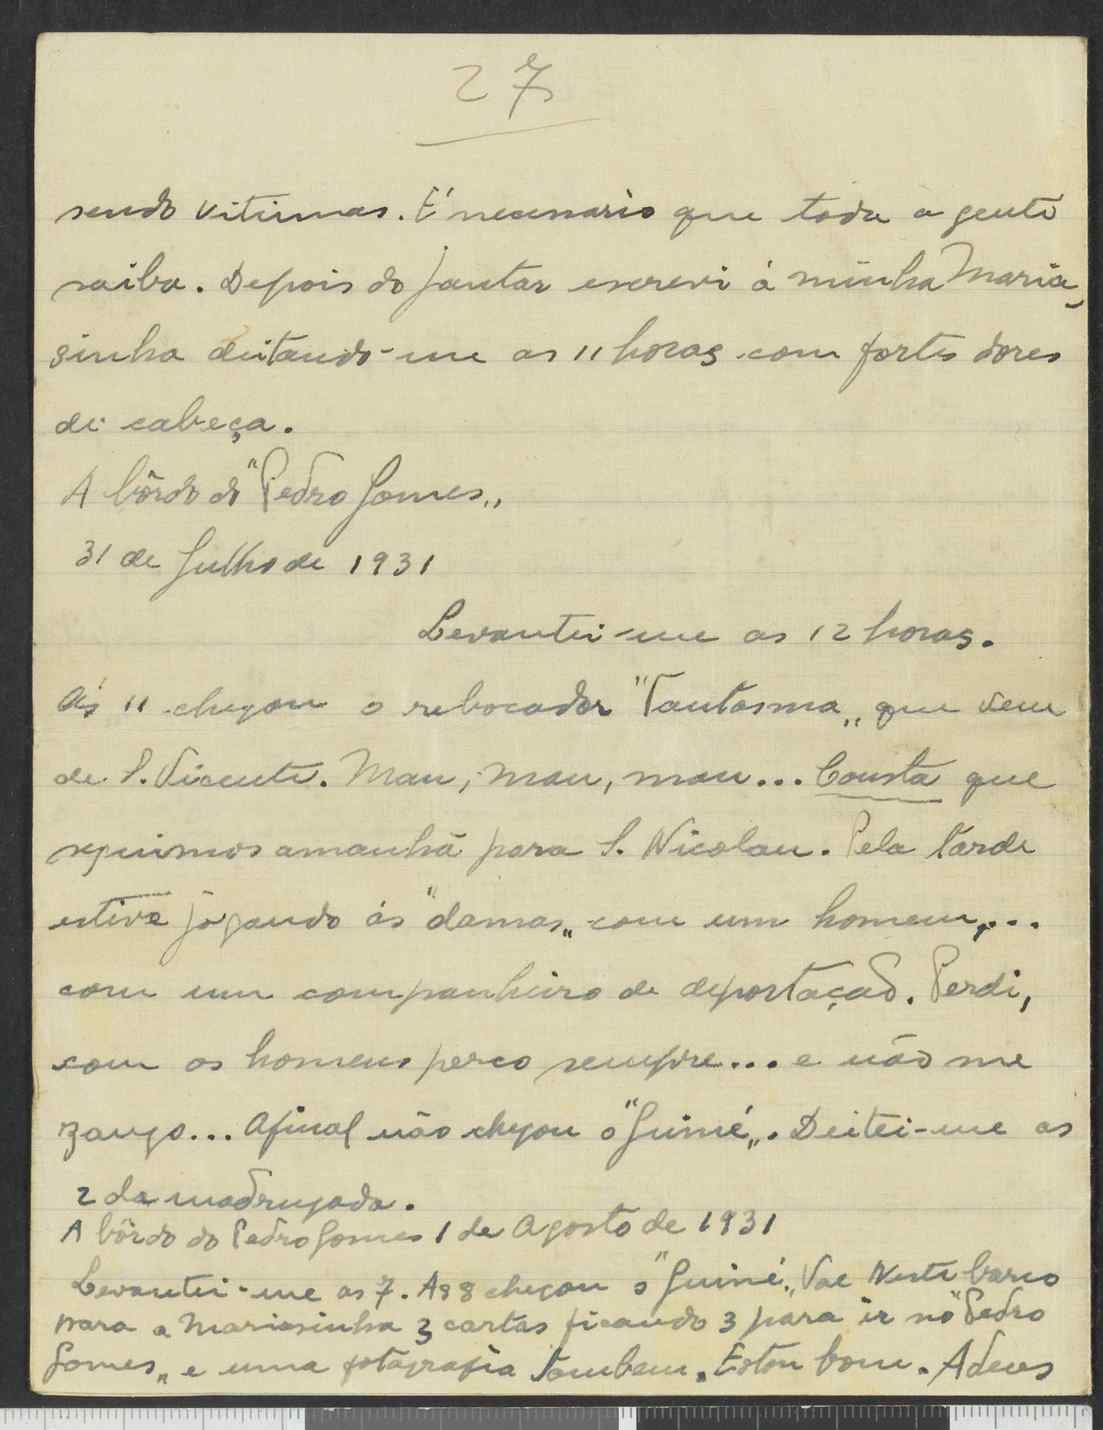 27
sendo vitimas. É necessario que toda a gente
saiba. Depois do jantar escrevi á minha Maria-
sinha deitando-me as 11 horas com fortes dores
de cabeça.
A bôrdo do "Pedro Gomes"
31 de Julho de 1931
Levantei-me as 12 horas.
Ás 11 chegou o rebocador "Fantasma" que vem
de S. Vicente. Mau, mau, mau... Consta que
seguimos amanhã para S. Nicolau. Pela tarde
estive jogando ás "damas" com um homem,...
com um companheiro de deportação. Perdi,
com os homens perco sempre... e não me
zango... Afinal não chegou o "Guiné". Deitei-me as
2 da madrugada.
A bôrdo do Pedro Gomes 1 de Agosto de 1931
Levantei-me as 7. As 8 chegou o "Guiné". Vae neste barco
para a Mariasinha 3 cartas ficando 3 para ir no "Pedro
Gomes" e uma fotografia tambem. Estou bom. Adeus